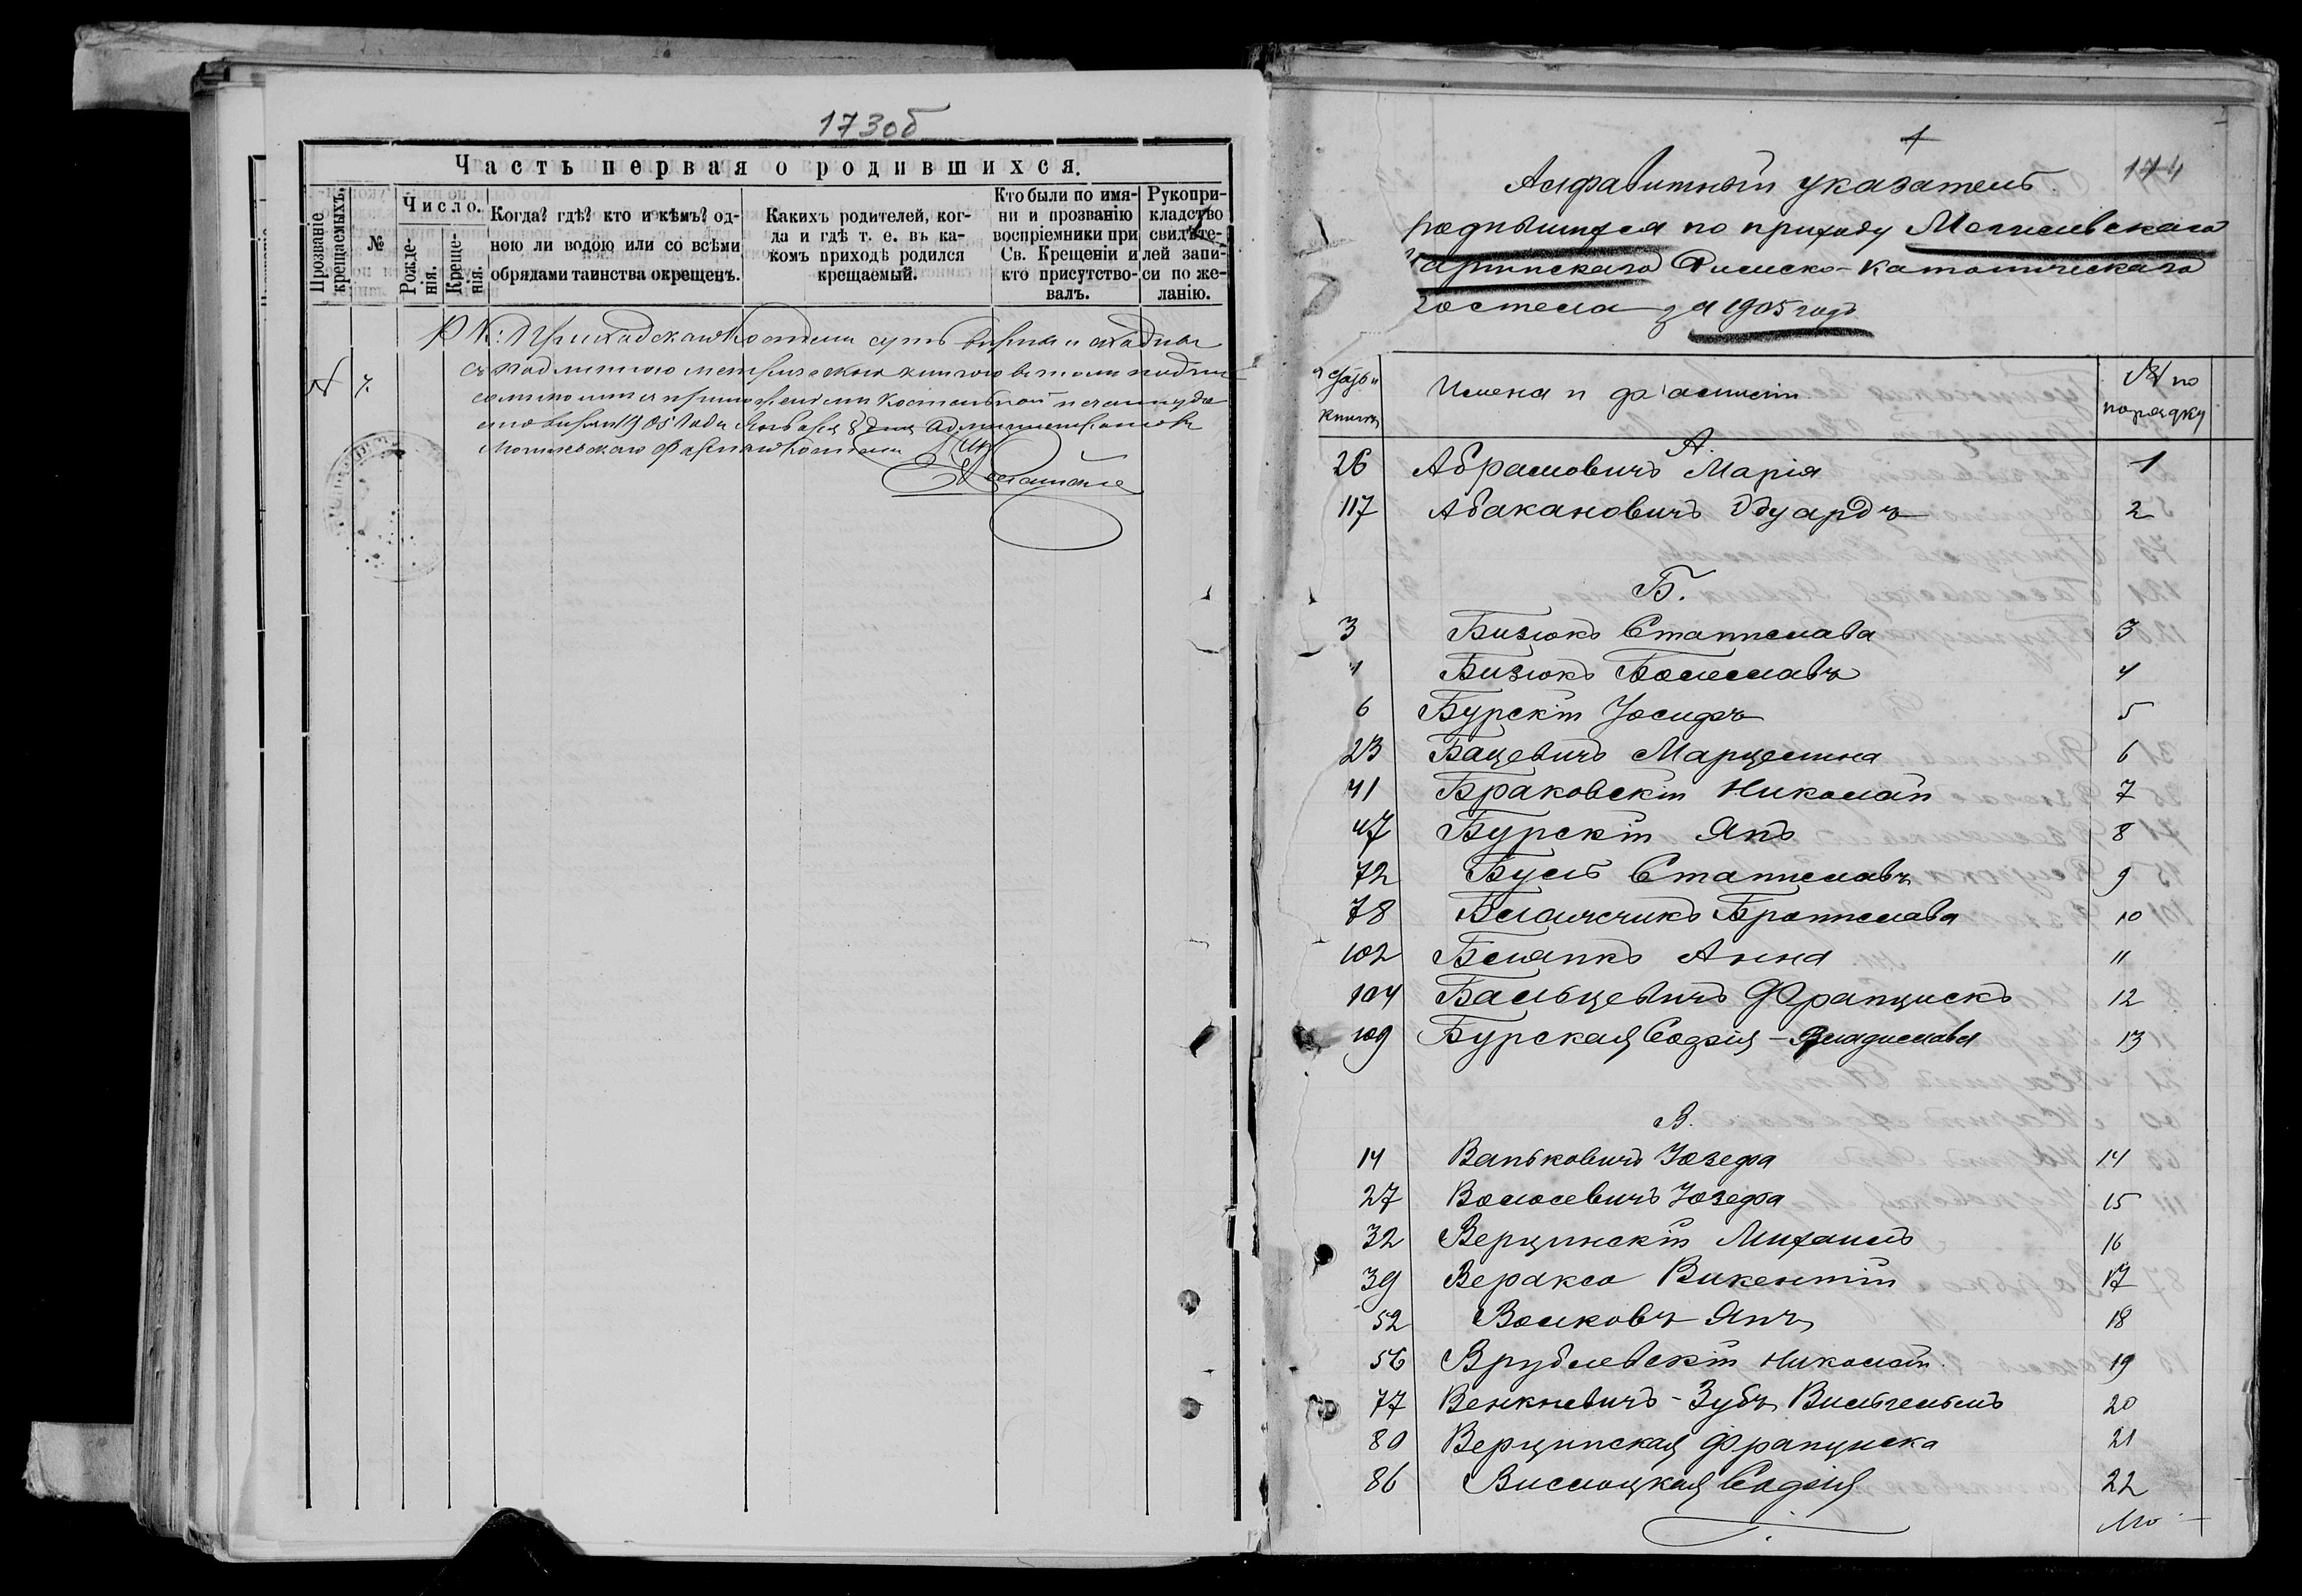 173об
Часть первая о родившихся.
Прозваніе крещаемыхъ.
№
Число.
Рожде-
нія.
Креще-
нія.
Когда? гдѣ? кто и кѣмъ? од-
ною ли водою или со всѣми
обрядами таинства окрещенъ.
Какихъ родителей, ког-
да и гдѣ т. е. въ ка-
комъ приходѣ родился
крещаемый.
Кто были по имя-
ни и прозванію
воспріемники при
Св. Крещеніи и
кто присутство-
валъ.
Рукопри-
кладство
свидѣте-
лей запи-
си по же-
ланію.
Р К: Приходскаго Костела суть вѣрны и сходны
съ подлинною метрическою книгою въ томъ подпи
съ приложеніемъ Костельной печати
1905 Года Января 8 дня Администраторъ
Могилевскаго Фарнаго Костела
174
Алфавитный указатель
родившихся по приходу Могилевскаго
Фарнскаго Римско-Католическаго
костела за 1905 годъ
№ книги
Имена и фамиліи
№ по
порядку
А.
26 Абрамовичъ Марія 1
117 Абакановичъ Эдуардъ 2
Б.
3 Бизюкъ Станислава 3
4 Бизюкъ Болеславъ 4
6 Бурскій Іосифъ 5
23 Бацевичъ Марцелина 6
41 Браковскій Николай 7
47 Бурскій Янъ 8
72 Буль Станиславъ 9
78 Бронислава 10
102 Анна 11
104 Бальцевичъ Францискъ 12
109 Бурская Софія-Владислава 13
В.
14 Ваньковичъ Юзефа 14
27 Волосевичъ Юзефа 15
32 Верцинскій Михаилъ 16
39 Веракса Викентій 17
52 Волковъ Янъ 18
56 Врублевскій Николай 19
77 Венкневичъ-Зубъ Вильгельмъ 20
80 Верцинская Франциска 21
86 Вислоцкая Софія 22